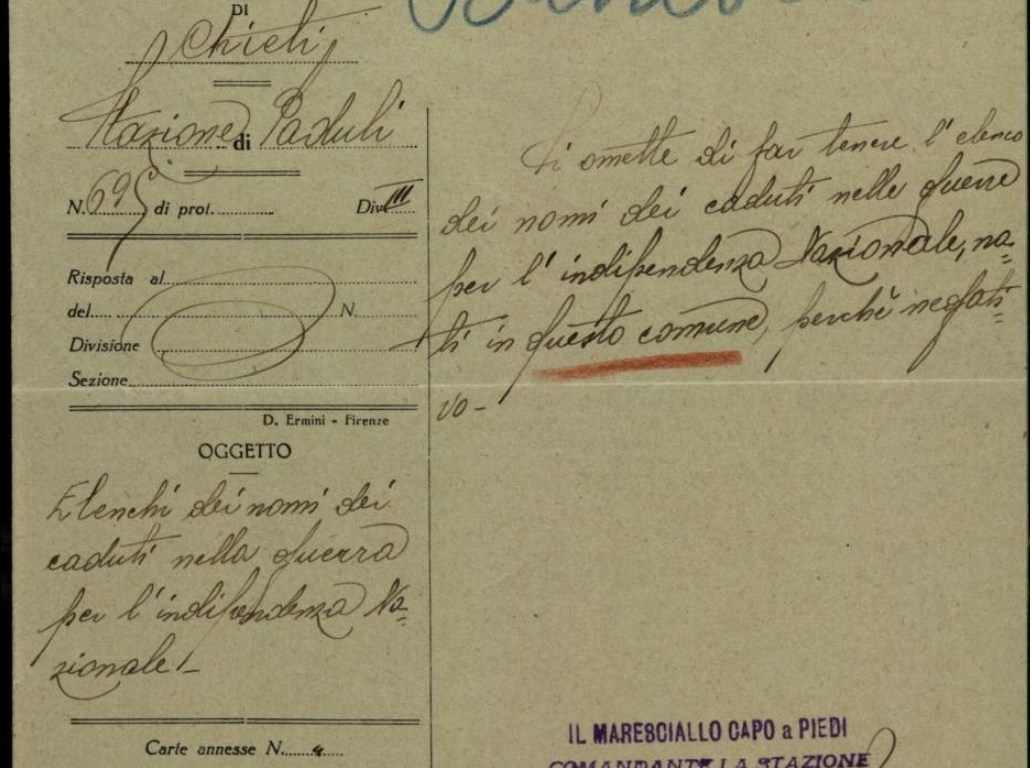 DI
Chieti
Stazione di Paduli
N. 695 di prot. Div. III
Risposta al
del N.
Divisione
Sezione
D. Ermini - Firenze
OGGETTO
Elenchi dei nomi dei
caduti nella guerra
per l'indipendenza Na=
zionale -
Carte annesse N.
Si omette di far tenere l'elenco
dei nomi dei caduti nelle guerre
per l'indipendenza Nazionale, na=
ti in questo comune, perchè negati=
vo -
IL MARESCIALLO CAPO a PIEDI
COMANDANTE LA STAZIONE